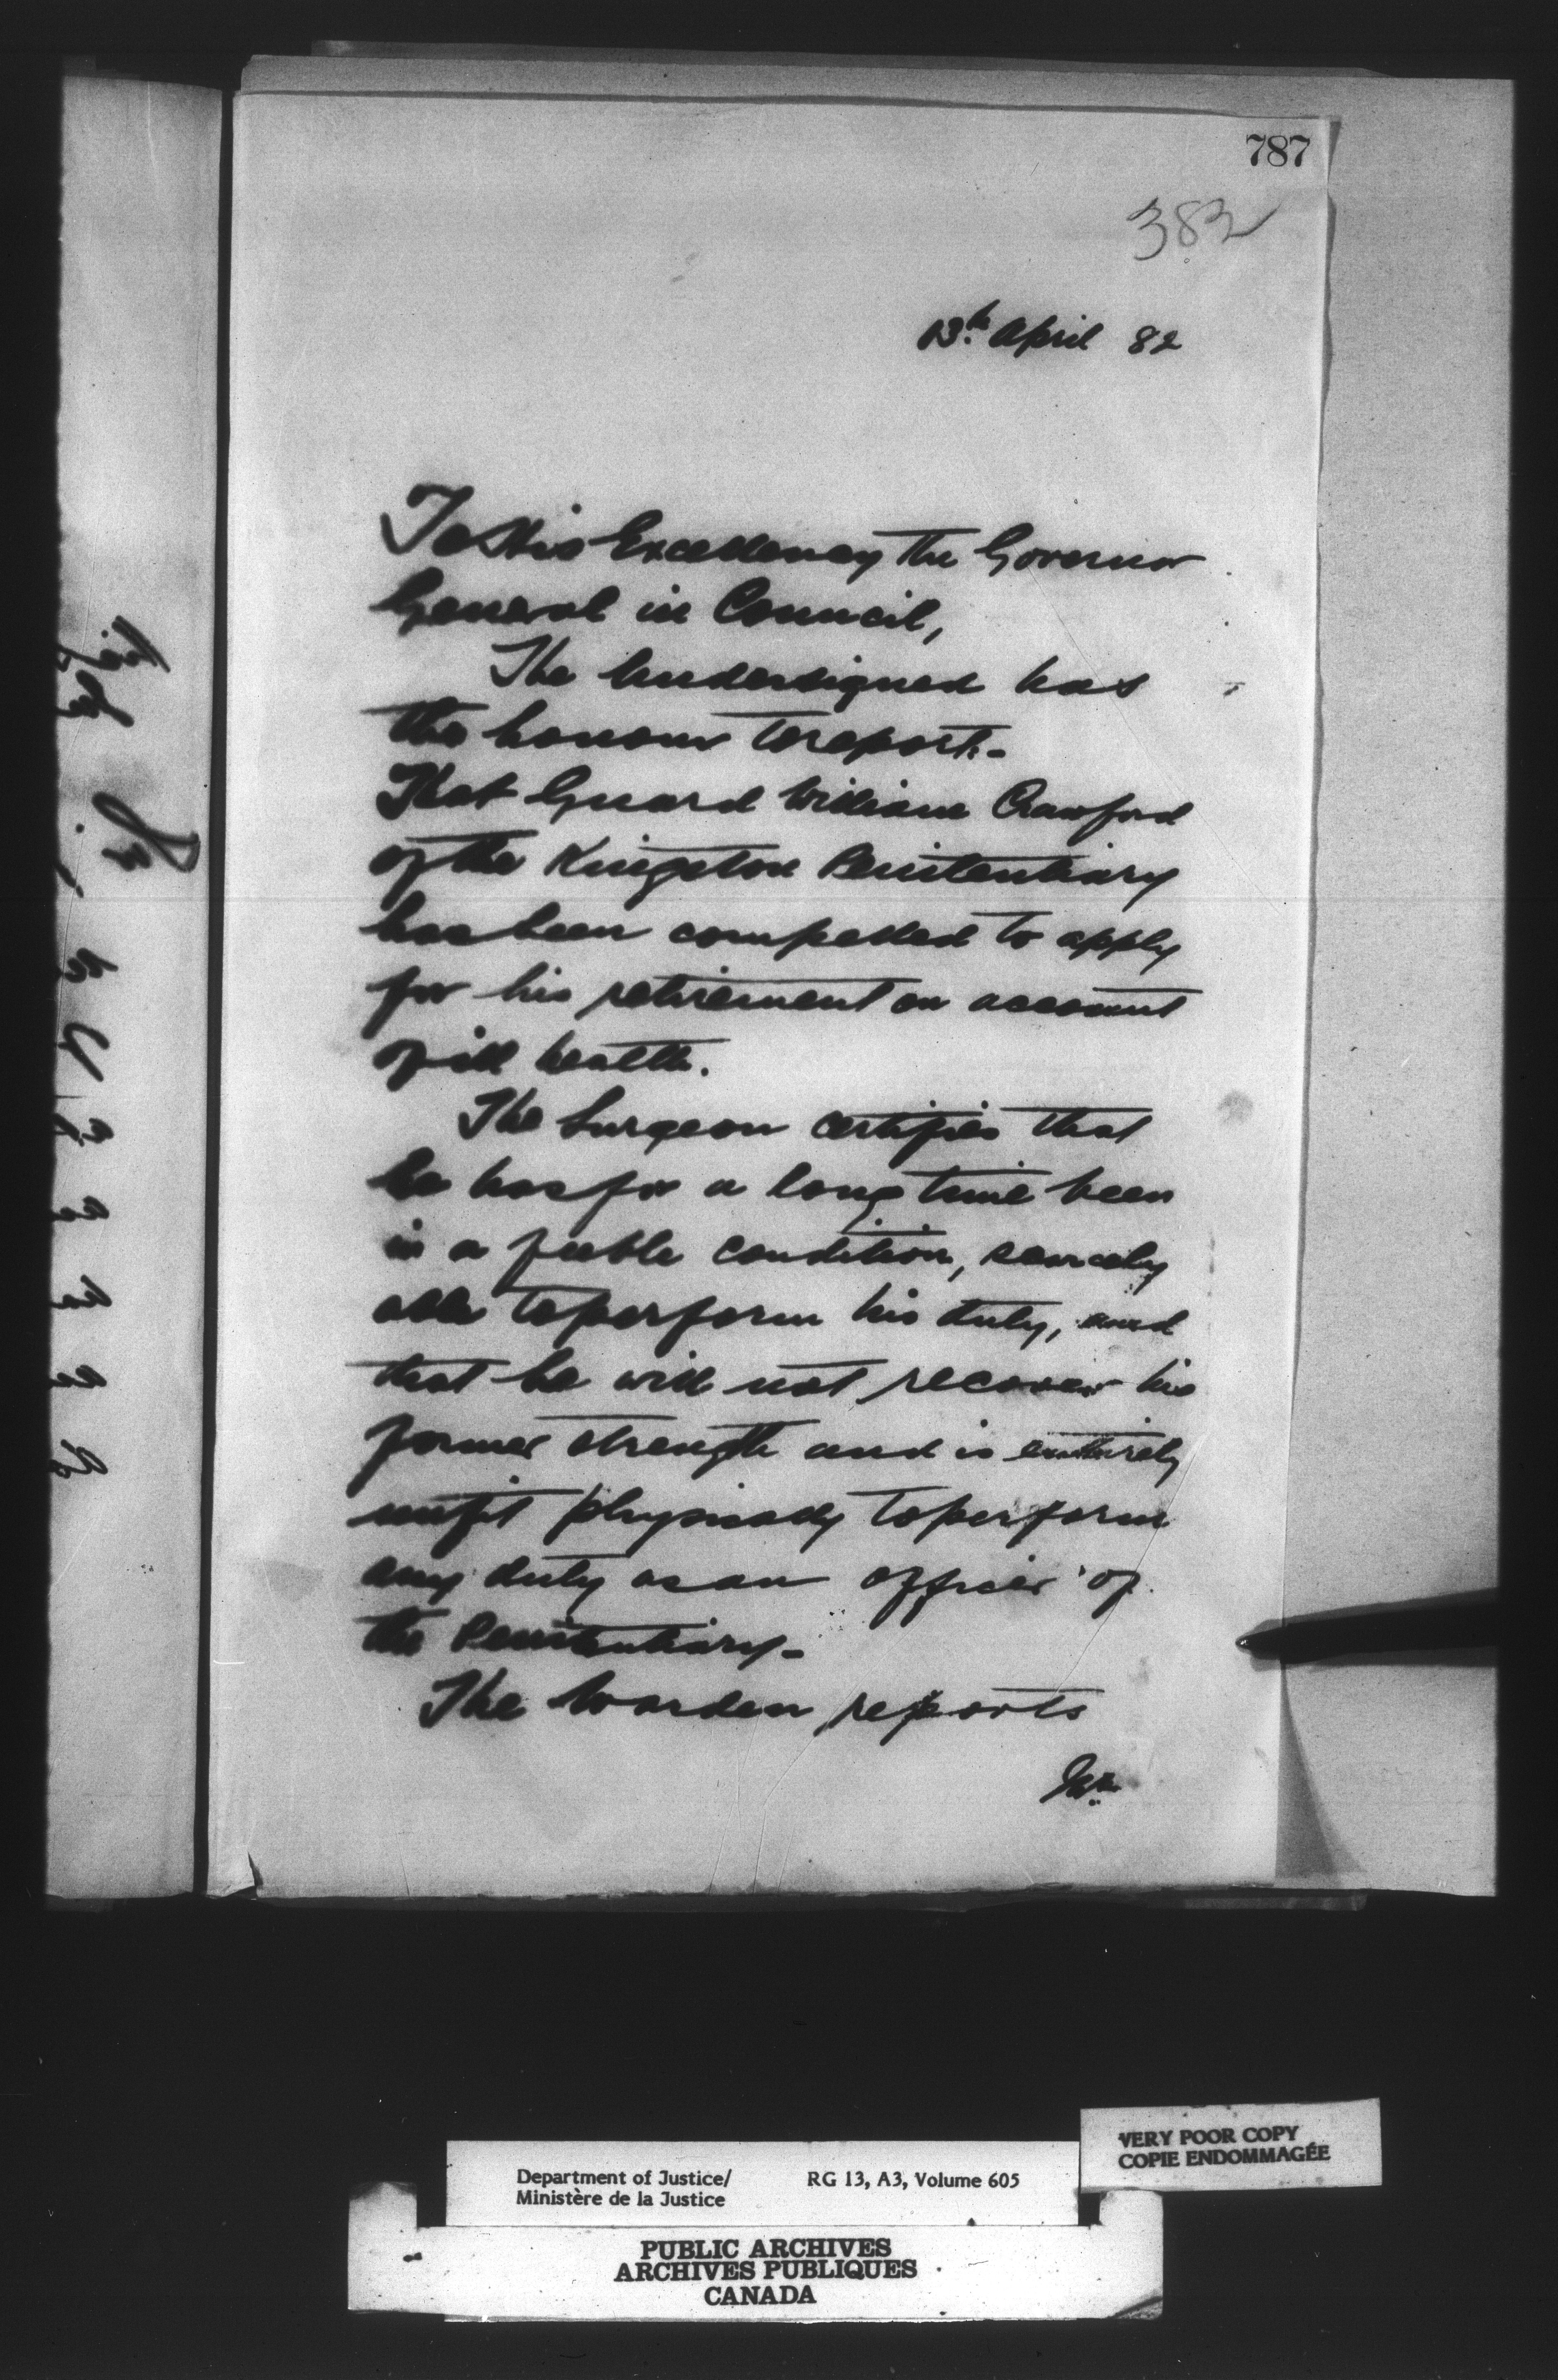 787
382
13th April 82
To His Excellency the Governor
General in Council,
The Undersigned has
the honour to report:-
That Guard William Crawford
of the Kingston Penitentiary
has been compelled to apply
for his retirement on account
of ill health.
The Surgeon certifies that
he has for a long time been
in a feeble condition, scarcely
able to perform his duty, and
that he will not recover his
former strength and is entirely
unfit physically to perform
any duty as an officer of
the Penitentiary-
The Warden reports
Department of Justice/ RG 13, A3, Volume 605
Ministère de la Justice
VERY POOR COPY
COPIE ENDOMMAGÉE
PUBLIC ARCHIVES
ARCHIVES PUBLIQUES
CANADA